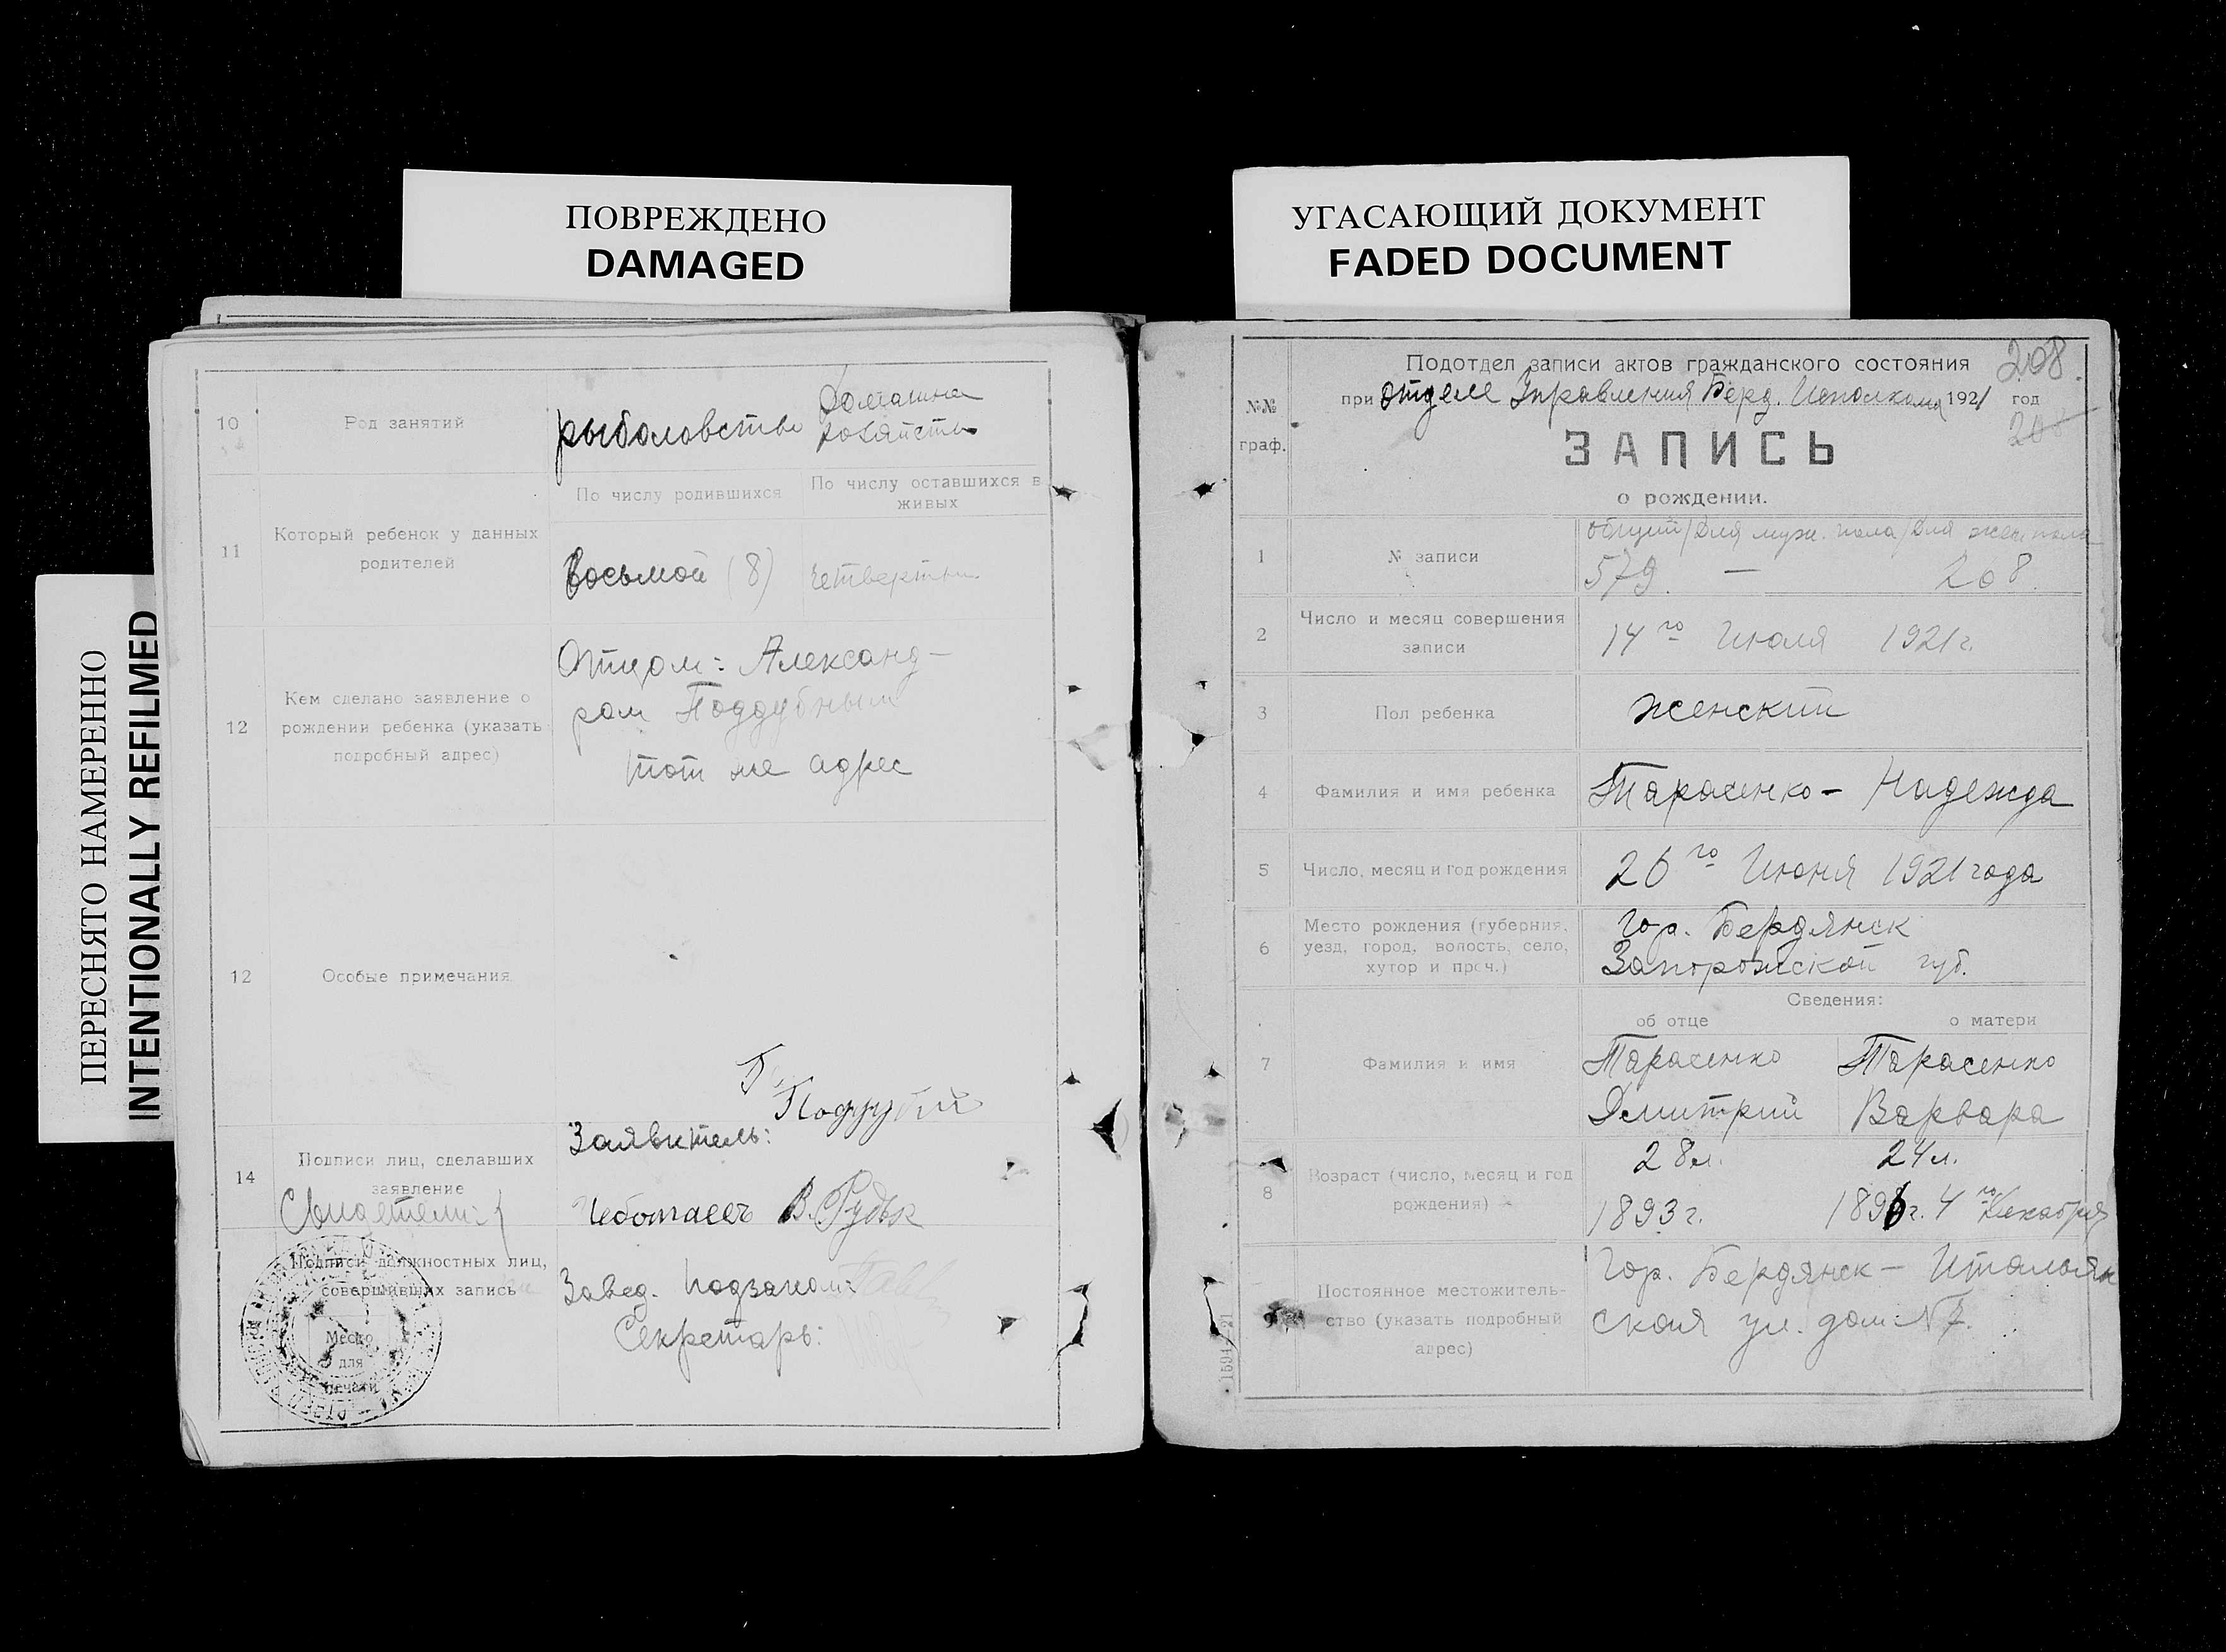 ПОВРЕЖДЕНО
DAMAGED
УГАСАЮЩИЙ ДОКУМЕНТ
FADED DOCUMENT
ПЕРЕСНЯТО НАМЕРЕННО
INTENTIONALLY REFILMED
10
Род занятий
рыболовство
Домашнее
хозяйство
11
Который ребенок у данных
родителей
По числу родившихся
По числу оставшихся в
живых
Восьмой (8)
четвертый
12
Кем сделано заявление о
рождении ребенка (указать
подробный адрес)
Отцом: Александ-
ром Поддубным
тот же адрес
12
Особые примечания
14
Подписи лиц, сделавших
заявление
Свидетели:
Поддубный
Заявитель:
Чеботаевъ В. Рудык
Подписи должностных лиц,
совершивших запись
Место
для
печати
Завед. подзагом:
Секретарь:
№№
граф.
Подотдел записи актов гражданского состояния
208
при отделе Управления Берд. Исполкома 1921 год
ЗАПИСЬ
о рождении.
1
№ записи
общий/для муж. пола/для жен. пола
579. — 208.
2
Число и месяц совершения
записи
14го Июля 1921 г.
3
Пол ребенка
женский
4
Фамилия и имя ребенка
Тарасенко - Надежда
5
Число, месяц и год рождения
26го Июня 1921 года
6
Место рождения (губерния,
уезд, город, волость, село,
хутор и проч.)
гор. Бердянск
Запорожской губ.
Сведения:
об отце
о матери
7
Фамилия и имя
Тарасенко
Дмитрий
Тарасенко
Варвара
8
Возраст (число, месяц и год
рождения)
28 л.
1893 г.
24 л.
1896 г. 4го Декабря
9
Постоянное местожитель-
ство (указать подробный
адрес)
гор. Бердянск - Итальян
ская ул. дом № 7.
1594-21